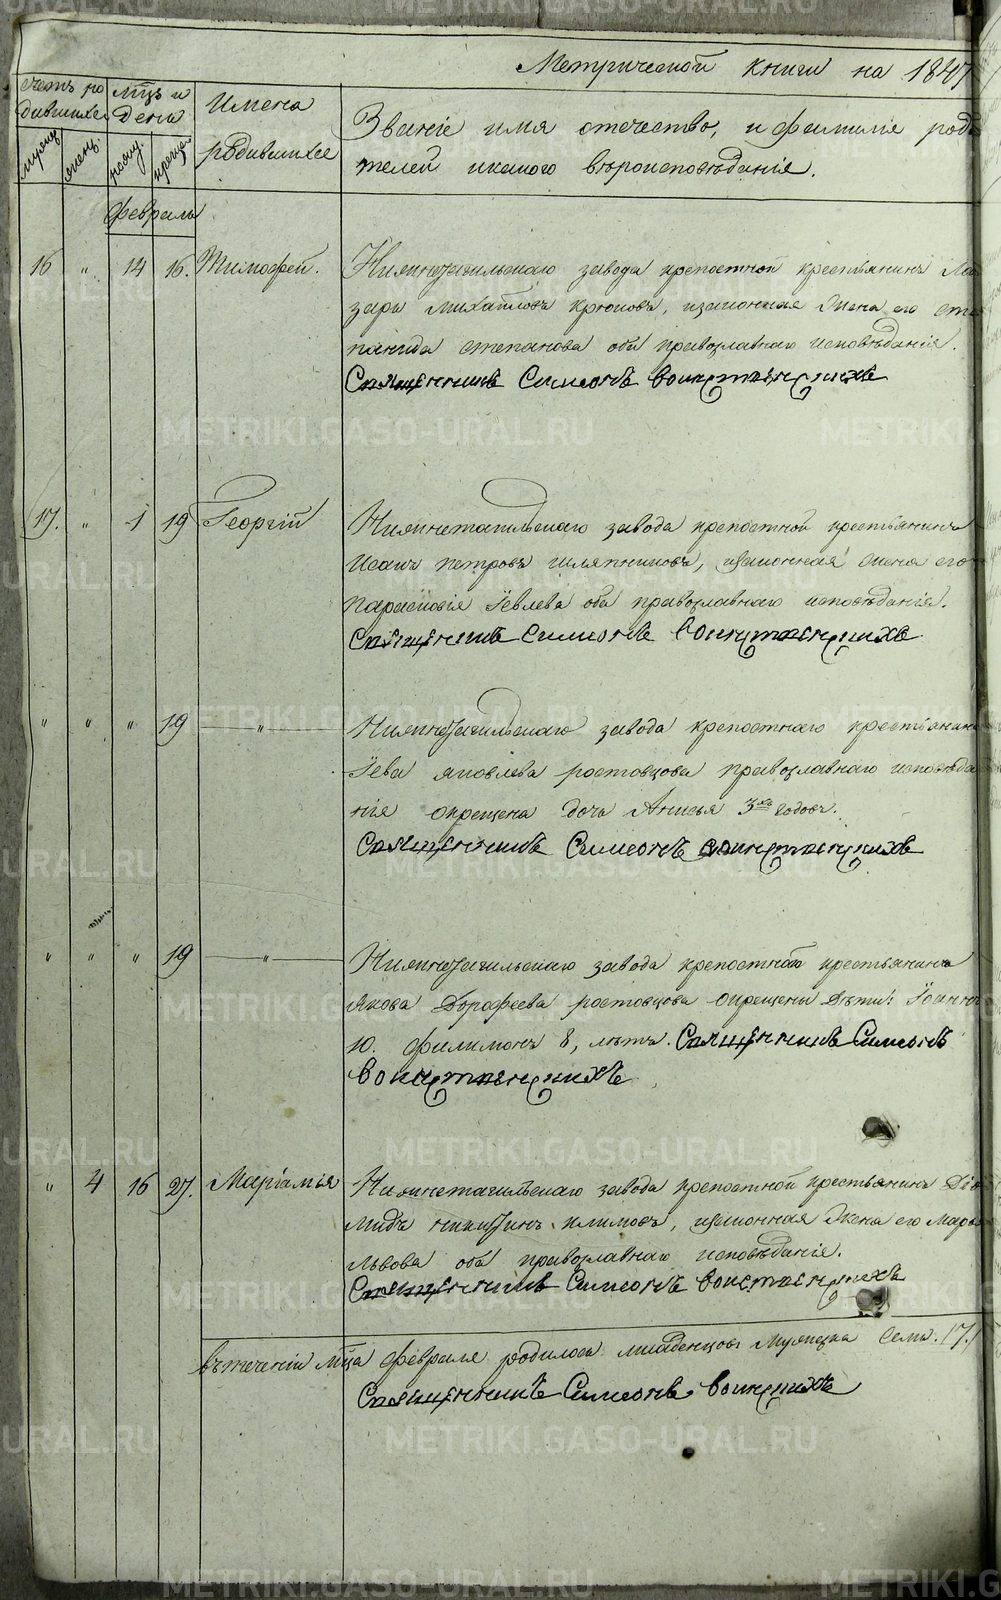 Метрической книги на 1847
Счетъ ро
дившихся
Мѣцъ и
день
Имена
родившихся
Званіе имя отечество, и фамиліе роди
телей и какого вѣроисповѣданія.
мужеск.
женск.
рожд.
крещен.
февраль
16 " 14 16. Тимофей. Нижнетагильскаго завода крепостной крестьянинъ Ла
зарь Михайловъ Крюковъ, изаконная жена его Сте
панида Степанова оба православнаго исповѣданія.
Священникъ Симеонъ
17. " 1 19 Георгій Нижнетагильскаго завода крепостной крестьянинъ
Исакъ Петровъ Шляпниковъ, изаконная жена его
Парасковія Іевлева оба православнаго исповѣданія.
Священникъ Симеонъ
" " " 19 " Нижнетагильскаго завода крепостнаго крестьянина
Іева Яковлева Ростовцова православнаго исповѣда
нія окрещена дочь Анисья 3хъ годовъ.
Священникъ Симеонъ
" " " 19 " Нижнетагильскаго завода крепостнаго крестьянина
Якова Дорофеева Ростовцова окрещены дѣти: Іоаннъ
10. Филимонъ 8, лѣтъ. Священникъ Симеонъ
" 4 16 27. Маріамья Нижнетагильскаго завода крепостной крестьянинъ Діо
мидъ Никитинъ Климовъ, изаконная жена его Марья
Львова оба православнаго исповѣданія.
Священникъ Симеонъ
Втечении Мѣца февраля родилось младенцовъ мужеска семь. 17.
Священникъ Симеонъ
METRIKI.GASO-URAL.RU